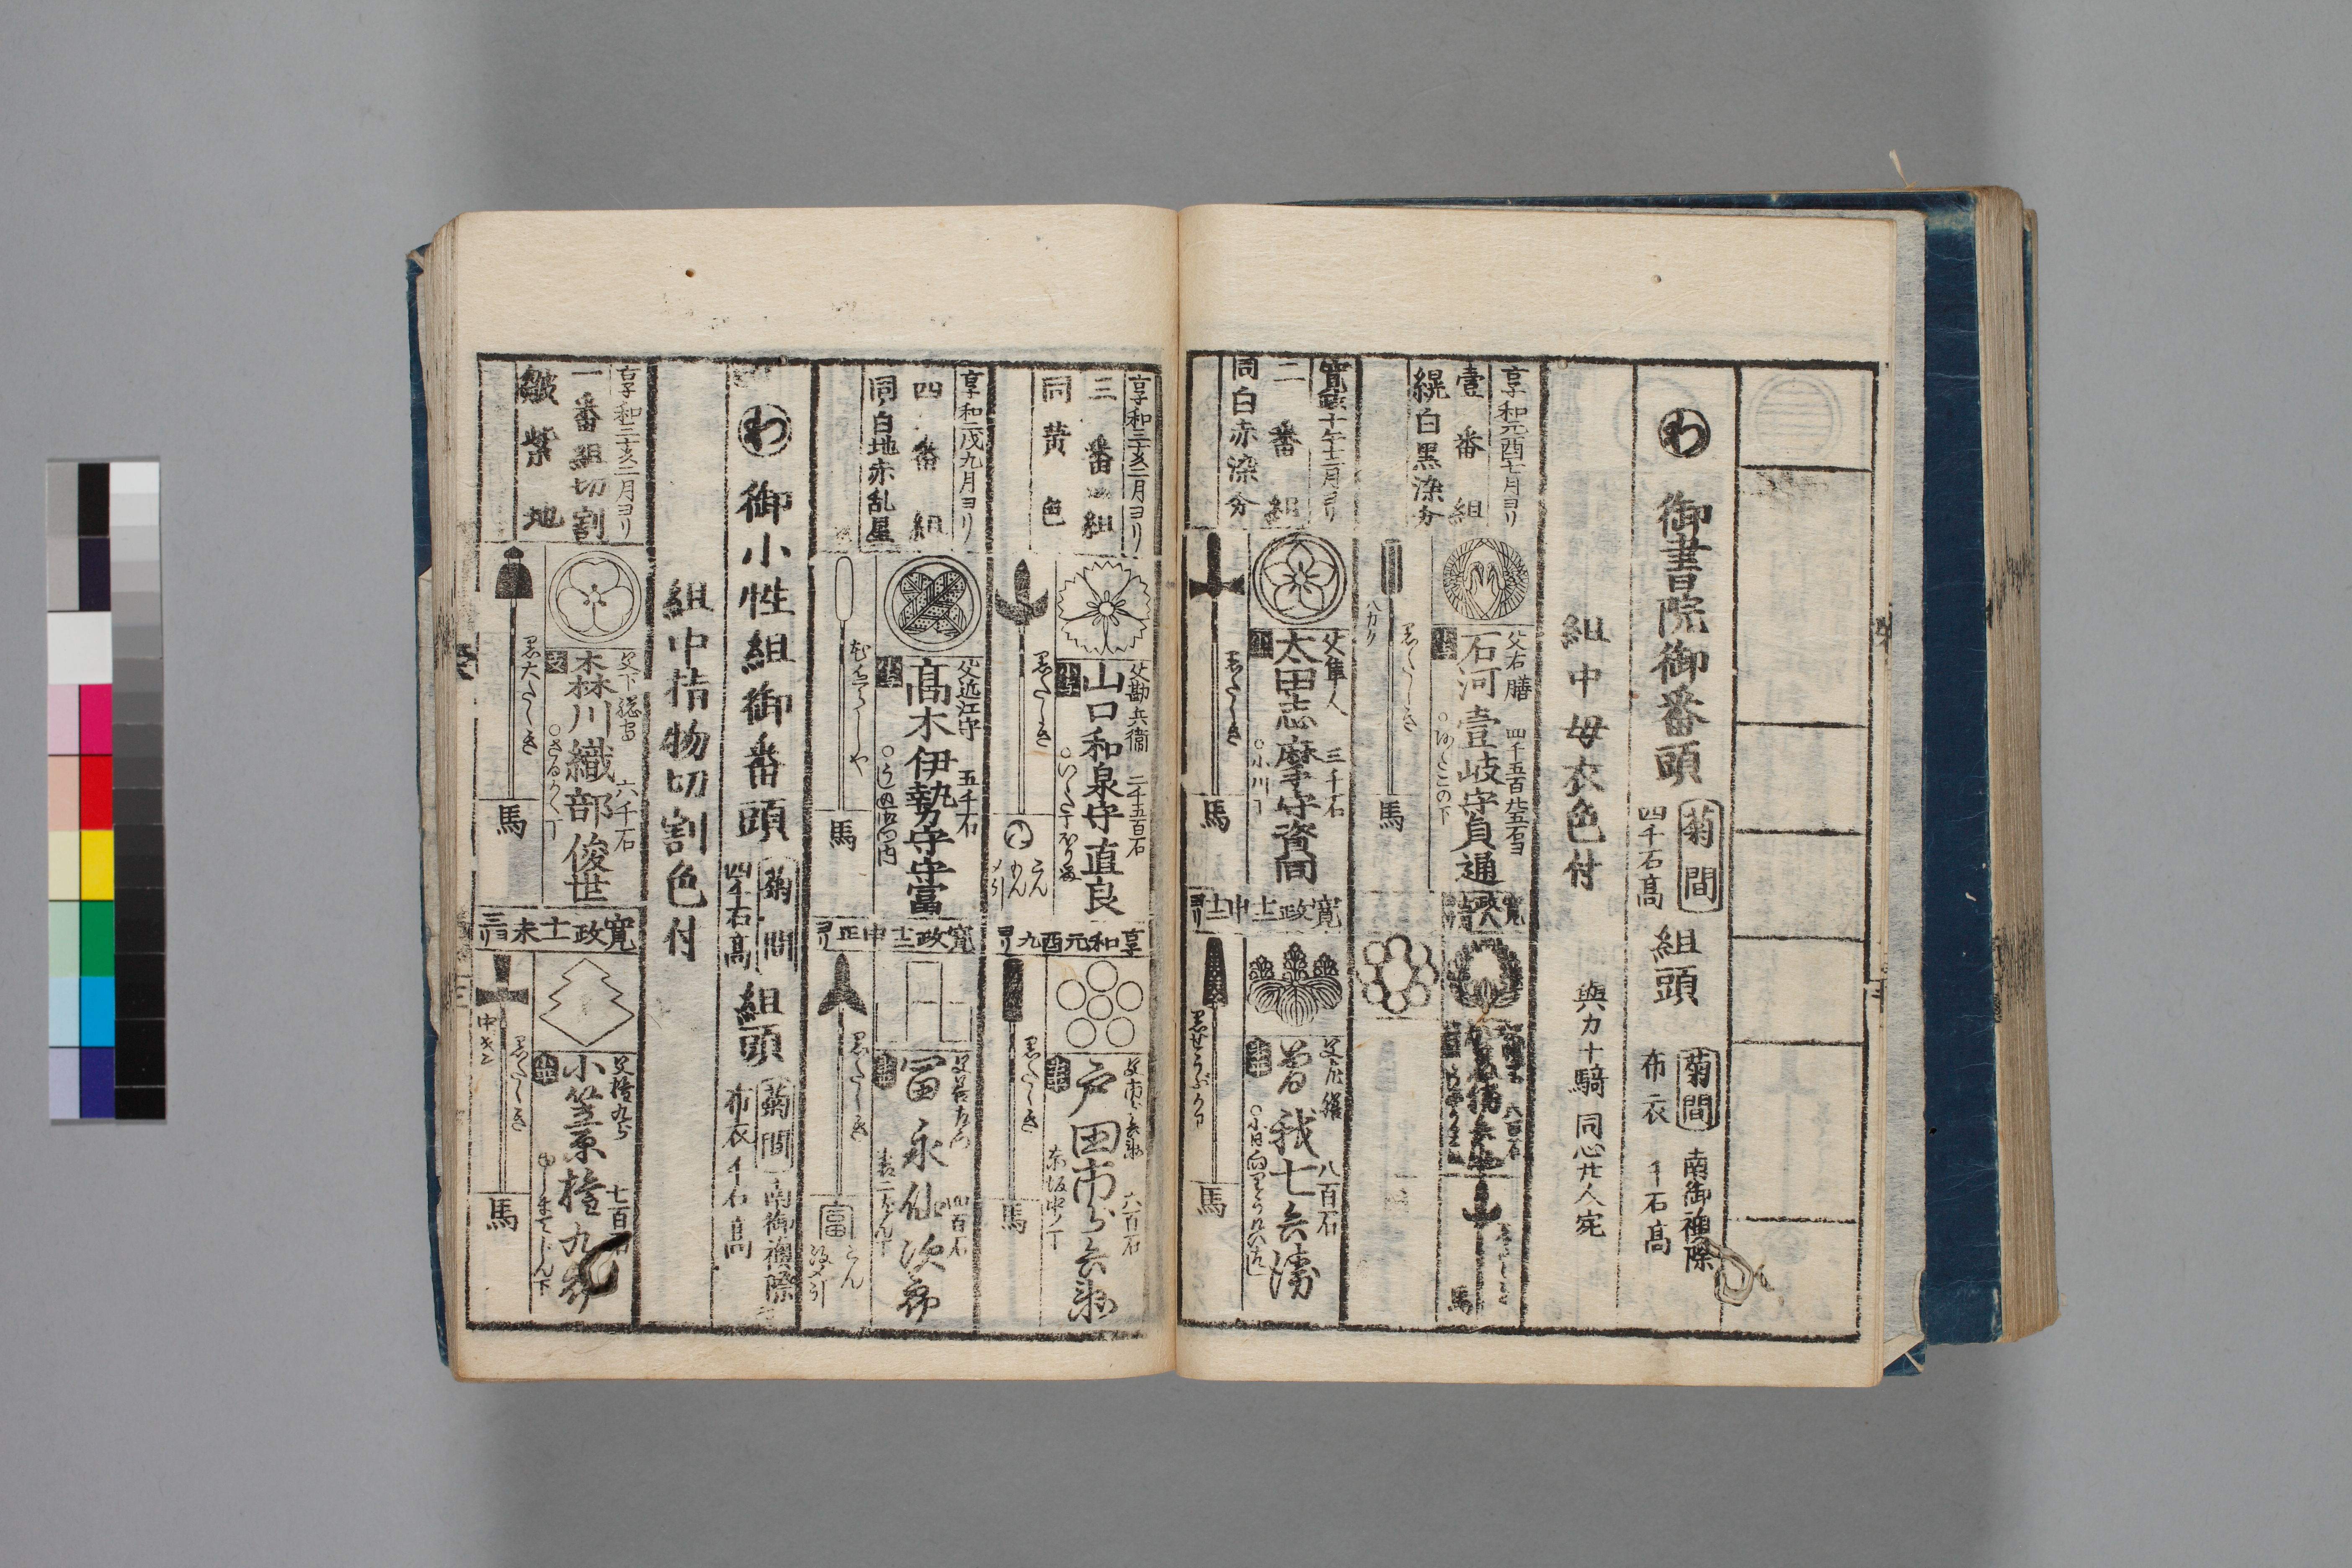 わ
御書院御番頭
菊間
四千石高
組頭
菊間
布衣
千石高
南御襖際
組中母衣色付
與力十騎
同心廿人宛
享和元酉七月ヨリ
壹番組
縨白黒染分
父右膳
四千五百廿五石ヨ
石河壹岐守貞通
黒たゝき
八カク
馬
馬
寛政十午十二月ヨリ
二番組
同白赤染分
父隼人
三千石
太田志摩守資同
○小川丁
黒たゝき
馬
寛政十二申十二ヨリ
八百石
曽我七兵衛
馬
享和三亥二月ヨリ
三番組
同黄色
父勘兵衛
二千五百石
山口和泉守直良
黒たゝき
享和元酉九ヨリ
六百石
戸田市郎兵衛
黒たゝき
馬
享和二戌九月ヨリ
四番組
同白地赤乱星
父近江守
五千石
高木伊勢守守富
馬
寛政十二申正ヨリ
四百石
冨永仙次郎
黒たゝき
富
わ
御小性組御番頭
菊間
四千石高
組頭
菊間
布衣千石高
南御襖際
組中指物切割色付
享和三亥二月ヨリ
一番組切割
皺紫地
父下総守
六千石
森川織部俊世
○さるかく丁
黒大たゝき
馬
寛政十一未三ヨリ
父権九郎
七百石
小笠原権九郎
黒たゝき
馬